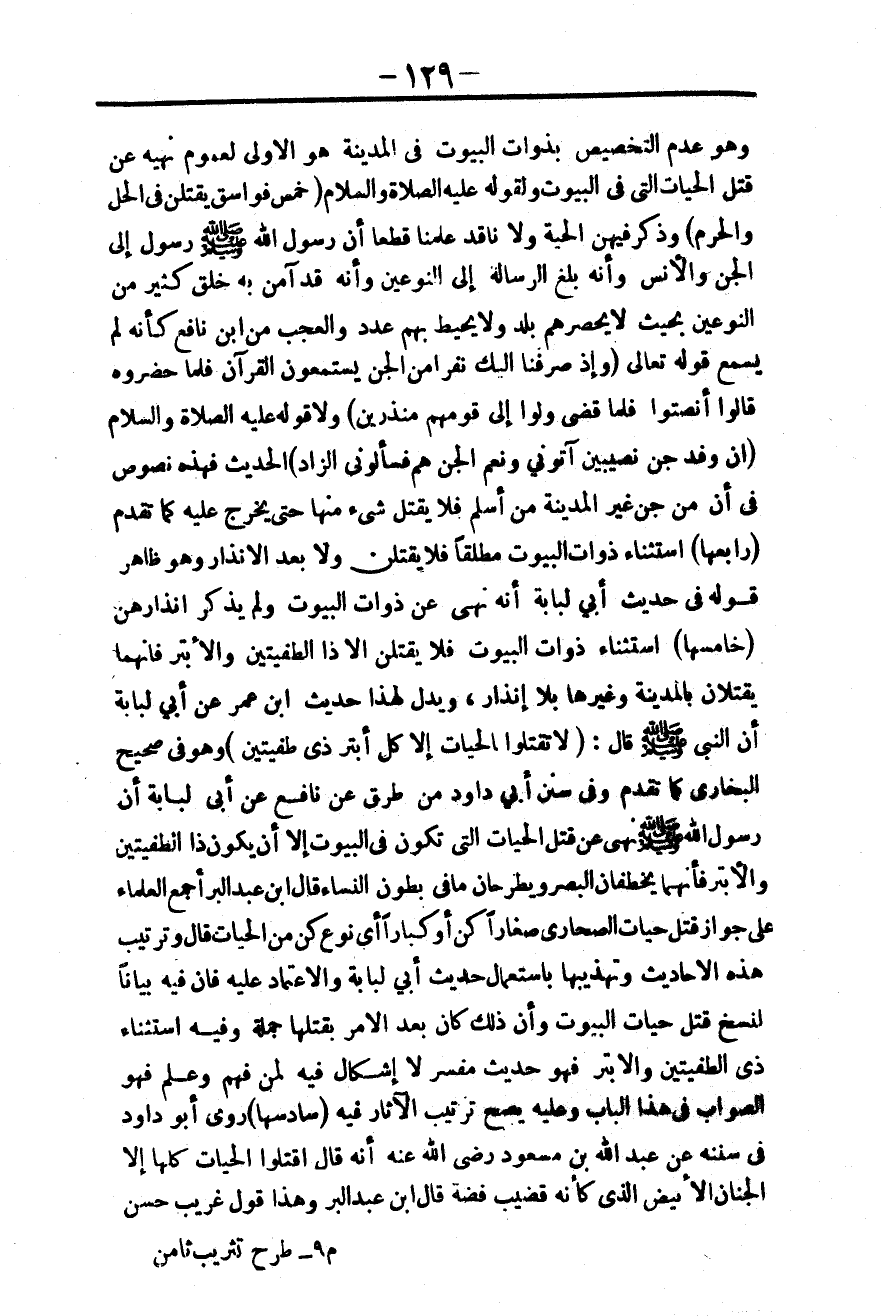 -١٢٩-
وهو عدم التخصيص بذوات البيوت فى المدينة هو الاولى لعموم نهيه عن
قتل الحيات التى فى البيوت ولقوله عليه الصلاة والسلام (خمس فواسق يقتلن فى الحل
والحرم) وذكر فيهن الحية ولا ناقد علمنا قطعا أن رسول الله ﷺ رسول إلى
الجن والأنس وأنه بلغ الرسالة إلى النوعين وأنه قد آمن به خلق كثير من
النوعين بحيث لا يحصرهم بلد ولا يحيط بهم عدد والعجب من ابن نافع كأنه لم
يسمع قوله تعالى (وإذ صرفنا اليك نفرا من الجن يستمعون القرآن فلما حضروه
قالوا أنصتوا فلما قضى ولوا إلى قومهم منذرين) ولا قوله عليه الصلاة والسلام
(ان وفد جن نصيبين آتوني ونعم الجن هم فسألونى الزاد) الحديث فهذه نصوص
فى أن من جن غير المدينة من أسلم فلا يقتل شىء منها حتى يخرج عليه كما تقدم
(رابعها) استثناء ذوات البيوت مطلقاً فلا يقتلن ولا بعد الانذار وهو ظاهر
قوله فى حديث أبي لبابة أنه نهى عن ذوات البيوت ولم يذكر انذارهن
(خامسها) استثناء ذوات البيوت فلا يقتلن الا ذا الطفيتين والأبتر فانهما
يقتلان بالمدينة وغيرها بلا إنذار ، ويدل لهذا حديث ابن عمر عن أبي لبابة
أن النبي ﷺ قال : ( لا تقتلوا الحيات إلا كل أبتر ذى طفيتين ) وهو فى صحيح
البخارى كما تقدم وفى سنن أبي داود من طرق عن نافع عن أبى لبابة أن
رسول الله ﷺ نهى عن قتل الحيات التى تكون فى البيوت إلا أن يكون ذا الطفيتين
والأبتر فأنهما يخطفان البصر ويطرحان مافى بطون النساء قال ابن عبد البر أجمع العلماء
على جواز قتل حيات الصحارى صغاراً كن أو كباراً أى نوع كن من الحيات قال وترتيب
هذه الاحاديث وتهذيبها باستعمال حديث أبي لبابة والاعتماد عليه فان فيه بياناً
لنسخ قتل حيات البيوت وأن ذلك كان بعد الامر بقتلها جملة وفيه استثناء
ذى الطفيتين والابتر فهو حديث مفسر لا إشكال فيه لمن فهم وعلم فهو
الصواب فى هذا الباب وعليه يصح ترتيب الآثار فيه (سادسها) روى أبو داود
فى سننه عن عبد الله بن مسعود رضى الله عنه أنه قال اقتلوا الحيات كلها إلا
الجنان الأبيض الذى كأنه قضيب فضة قال ابن عبد البر وهذا قول غريب حسن
م٩ــ طرح تثريب ثامن